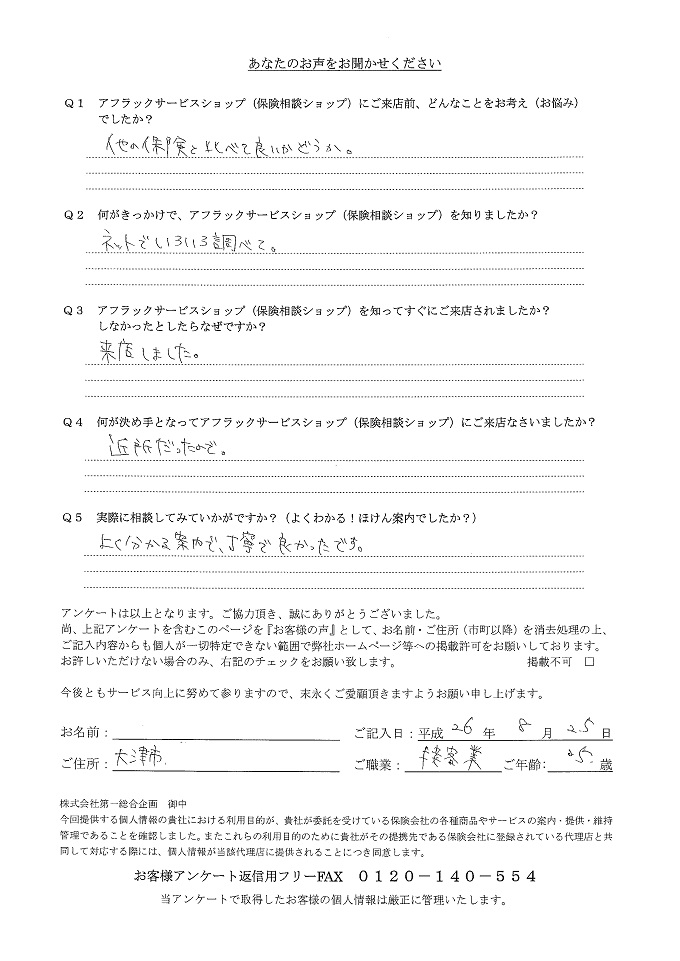 あなたのお声をお聞かせください
Q1 アフラックサービスショップ（保険相談ショップ）にご来店前、どんなことをお考え（お悩み）
でしたか？
他の保険と比べて良いかどうか。
Q2 何がきっかけで、アフラックサービスショップ（保険相談ショップ）を知りましたか？
ネットでいろいろ調べて。
Q3 アフラックサービスショップ（保険相談ショップ）を知ってすぐにご来店されましたか？
しなかったとしたらなぜですか？
来店しました。
Q4 何が決め手となってアフラックサービスショップ（保険相談ショップ）にご来店なさいましたか？
近所だったので。
Q5 実際に相談してみていかがですか？（よくわかる！ほけん案内でしたか？）
よく分かる案内で、丁寧で良かったです。
アンケートは以上となります。ご協力頂き、誠にありがとうございました。
尚、上記アンケートを含むこのページを『お客様の声』として、お名前・ご住所（市町以降）を消去処理の上、
ご記入内容からも個人が一切特定できない範囲で弊社ホームページ等への掲載許可をお願いしております。
お許しいただけない場合のみ、右記のチェックをお願い致します。 掲載不可 □
今後ともサービス向上に努めて参りますので、末永くご愛顧頂きますようお願い申し上げます。
お名前： ご記入日：平成 26 年 8 月 25 日
ご住所：大津市 ご職業：接客業 ご年齢：25 歳
株式会社第一総合企画 御中
今回提供する個人情報の貴社における利用目的が、貴社が委託を受けている保険会社の各種商品やサービスの案内・提供・維持
管理であることを確認しました。またこれらの利用目的のために貴社がその提携先である保険会社に登録されている代理店と共
同して対応する際には、個人情報が当該代理店に提供されることにつき同意します。
お客様アンケート返信用フリーFAX 0120－140－554
当アンケートで取得したお客様の個人情報は厳正に管理いたします。